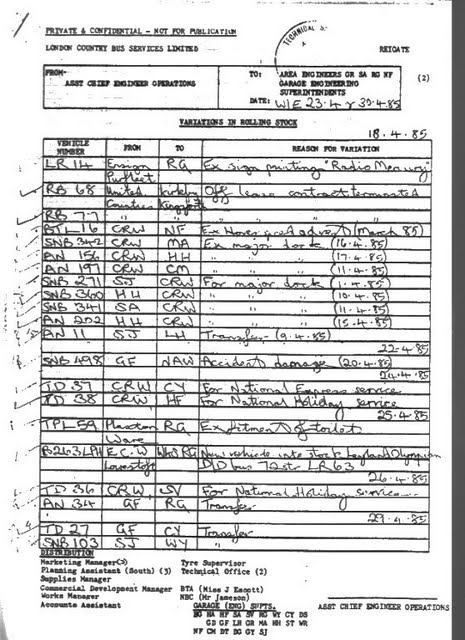 PRIVATE & CONFIDENTIAL - NOT FOR PUBLICATION
LONDON COUNTRY BUS SERVICES LIMITED
REIGATE
TECHNICAL
FROM- ASST CHIEF ENGINEER OPERATIONS
TO: AREA ENGINEERS GR SA RG NF
GARAGE ENGINEERING
SUPERINTENDENTS
(2)
DATE: W/E 23.4 & 30.4.85
VARIATIONS IN ROLLING STOCK
18.4.85
VEHICLE NUMBER FROM TO REASON FOR VARIATION
LR 14 Ensign Purfleet RG Ex sign printing "Radio Mercury"
RB 68 United Counties Off lease contract terminated
RB 77 " " "
BTL 16 CRW NF (March 85)
SNB 342 CRW MA Ex major dock (16.4.85)
AN 156 CRW HH " " (17.4.85)
AN 197 CRW CM " " (11.4.85)
SNB 271 SJ CRW For major dock (1.4.85)
SNB 360 HH CRW " " (10.4.85)
SNB 341 SA CRW " " (11.4.85)
AN 202 HH CRW " " (15.4.85)
AN 11 SJ LH Transfer (9.4.85)
22.4.85
SNB 498 GF NAW Accident damage (20.4.85)
24.4.85
TD 37 CRW CY For National Express service
TD 38 CRW HF For National Holiday service
25.4.85
TPL 59 Plaxton Ware RG Ex fitment of toilet
B263LPH E.C.W Lowestoft RG New vehicle into stock Leyland Olympian
D/D bus 72str LR63
26.4.85
TD 36 CRW SV For National Holiday service
AN 34 GF RG Transfer
29.4.85
TD 27 GF CY Transfer
SNB 103 SJ WY "
DISTRIBUTION
Marketing Manager Tyre Supervisor
Planning Assistant (South) (3) Technical Office (2)
Supplies Manager
Commercial Development Manager BTA (Miss J Escott)
Works Manager NBC (Mr Jameson)
Accounts Assistant GARAGE (ENG) SUPTS. ASST CHIEF ENGINEER OPERATIONS
BG HA HF SA SV RG WY CY DS
GD GF LH GR MA HH ST WR
NF CM DT DG GY SJ